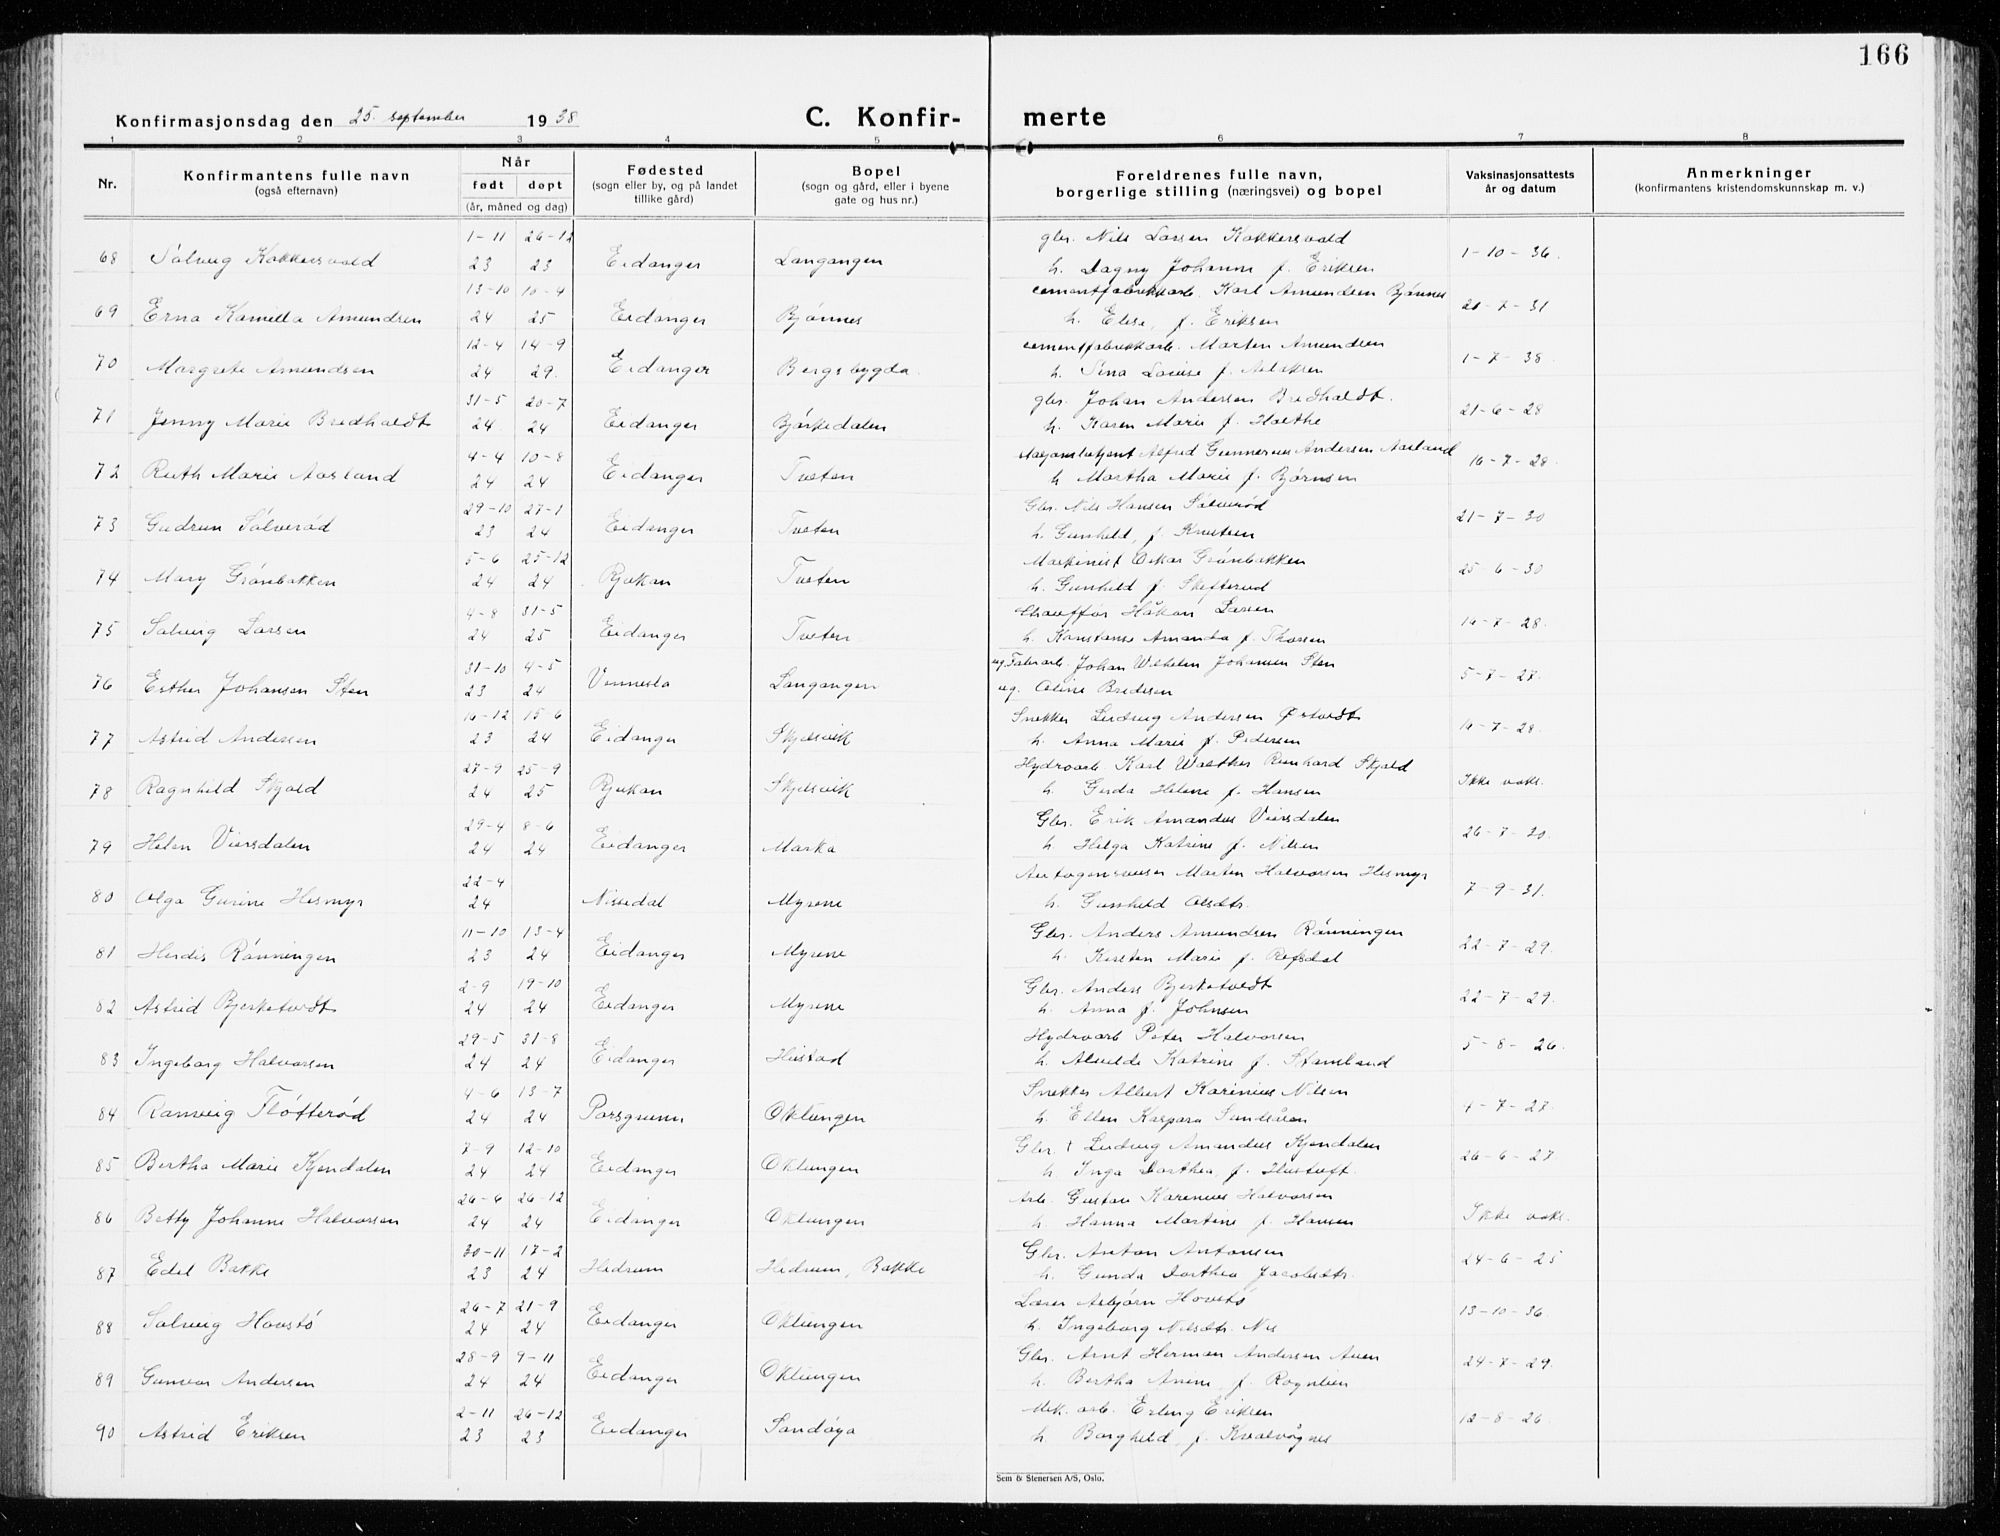 166
Konfirmasjonsdag den 25. september 1938
C. Konfir- merte
1 2 3 4 5 6 7 8
Nr.
Konfirmantens fulle navn
(også efternavn)
Når
født døpt
(år, måned og dag)
Fødested
(sogn eller by, og på landet
tillike gård)
Bopel
(sogn og gård, eller i byene
gate og hus nr.)
Foreldrenes fulle navn,
borgerlige stilling (næringsvei) og bopel
Vaksinasjonsattests
år og datum
Anmerkninger
(konfirmantens kristendomskunnskap m. v.)
1-11 26-12 gbr. Nils Larsen Kokkersvold
68 Solveig Kokkersvold 23 23 Eidanger Langangen h. Dagny Johanne f. Eriksen 1-10-36.
13-10 10-4 cementfabrikkarb. Karl Amundsen Bjønnes
69 Erna Kamilla Amundsen 24 25 Eidanger Bjønnes h. Elise, f. Eriksen 20-7-31
12-4 14-9 cementfabrikkarb. Marten Amundsen
70 Margrete Amundsen 24 29. Eidanger Bergsbygda h. Sina Louise f. 1-7-38.
31-5 20-7 gbr. Johan Andersen Bredhaldt.
71 Jenny Marie Bredhaldt 24 24 Eidanger Bjørkedalen h. Karen Marie f. Holthe 21-6-28
4-4 10-8 Alfred Gunnerius Andersen Aasland
72 Ruth Marie Aasland 24 24 Eidanger Tveten h. Martha Marie f. Bjørnsen 16-7-28.
29-10 27-1 Gbr. Nils Hansen Sølverød
73 Gudrun Sølverød 23 24 Eidanger Tveten h. Gunhild, f. Knutsen 21-7-30
5-6 25-12 Maskinist Oskar Grönbakken
74 Mary Grönbakken 24 24 Rjukan Tveten h. Gunhild f. Skifterud 25-6-30
4-8 31-5 Chauffør Håkon Larsen
75 Solveig Larsen 24 25 Eidanger Tveten h. Konstanse Amanda f. Thorsen 16-7-28.
31-10 4-5 ug. Fabr.arb. Johan Wilhelm Johansen Sten
76 Esther Johansen Sten 23 24 Vennesla Langangen ug. Oline Bredesen 5-7-27.
16-12 15-6 Snekker Ludvig Andersen Ørtvedt
77 Astrid Andersen 23 24 Eidanger Skjelsvik h. Anna Marie f. Pedersen 16-7-28.
27-9 25-9 Hydroarb Karl Walther Reinhard Skjold
78 Ragnhild Skjold 24 25 Rjukan Skjelsvik h. Gerda Helene f. Hansen Ikke vaks.
29-4 8-6 Gbr. Erik Amandus Viersdalen
79 Helen Viersdalen 24 24 Eidanger Marka h. Helga Katrine f. Nilsen 26-7-30
22-4 Autogensveiser Marten Halvorsen Hesmyr
80 Olga Gurine Hesmyr 24 Nissedal Myrene h. Gunhild Olsdtr. 7-9-31.
11-10 13-4 Gbr. Anders Amundsen Rønningen
81 Herdis Rønningen 23 24 Eidanger Myrene h. Kirsten Marie f. Refsdal 22-7-29.
2-9 19-10 Gbr. Anders Bjerketvedt
82 Astrid Bjerketvedt 24 24 Eidanger Myrene h. Anna f. Johnsen 22-7-29.
29-5 31-8 Hydroarb Peter Halvorsen
83 Ingeborg Halvorsen 24 24 Eidanger Heistad h. Alvilde Katrine f. Stamland 5-8-26.
4-6 13-7 Snekker Albert Karinius Nilsen
84 Ranveig Fløtterød 24 24 Porsgrunn Oklungen h. Ellen Kaspara Sundsåsen 4-7-27.
7-9 12-10 Gbr. Ludvig Amandus Kjendalen
85 Bertha Marie Kjendalen 24 24 Eidanger Oklungen h. Inga Dorthea, f. Hustuft. 26-6-27
26-6 26-12 Arb. Gustav Karenius Halvorsen
86 Betty Johanne Halvorsen 24 24 Eidanger Oklungen h. Hanna Martine f. Hansen Ikke vaks.
30-11 17-2 Gbr. Anton Antonsen
87 Edel Bakke 23 24 Hedrum Hedrum, Bakke h. Gunda Dorthea Jacobsdtr. 24-6-25
26-7 21-9 Lærer Asbjørn Hovstø
88 Solveig Hovstø 24 24 Eidanger Oklungen h. Ingeborg Nilsdtr. Nes 13-10-36
28-9 9-11 Gbr. Arnt Herman Andersen Auen
89 Gunvor Andersen 24 24 Eidanger Oklungen h. Bertha Anene f. Rognlien 24-7-29.
2-11 26-12 Mek. arb. Erling Eriksen
90 Astrid Eriksen 23 23 Eidanger Sandøya h. Borghild, f. Kvalvågnes 12-8-26.
Sem & Stenersen A/S, Oslo.